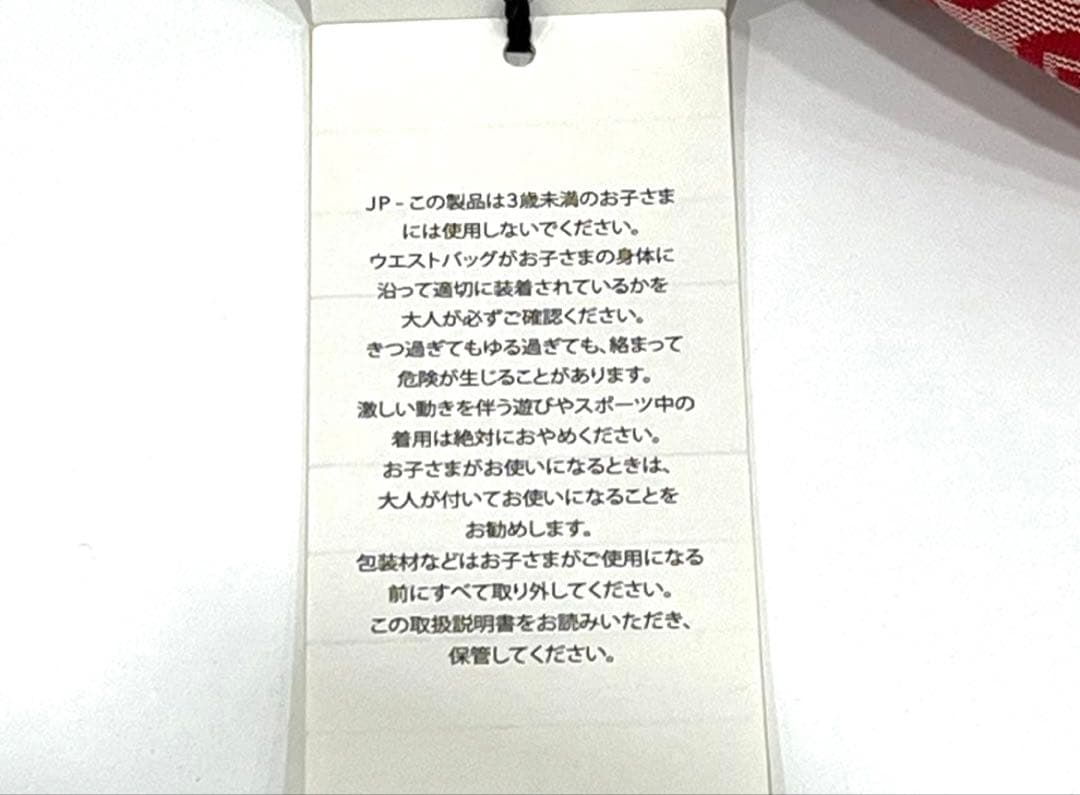 JP – この製品は3歳未満のお子さま
には使用しないでください。
ウエストバッグがお子さまの身体に
沿って適切に装着されているかを
大人が必ずご確認ください。
きつ過ぎてもゆる過ぎても、絡まって
危険が生じることがあります。
激しい動きを伴う遊びやスポーツ中の
着用は絶対におやめください。
お子さまがお使いになるときは、
大人が付いてお使いになることを
お勧めします。
包装材などはお子さまがご使用になる
前にすべて取り外してください。
この取扱説明書をお読みいただき、
保管してください。